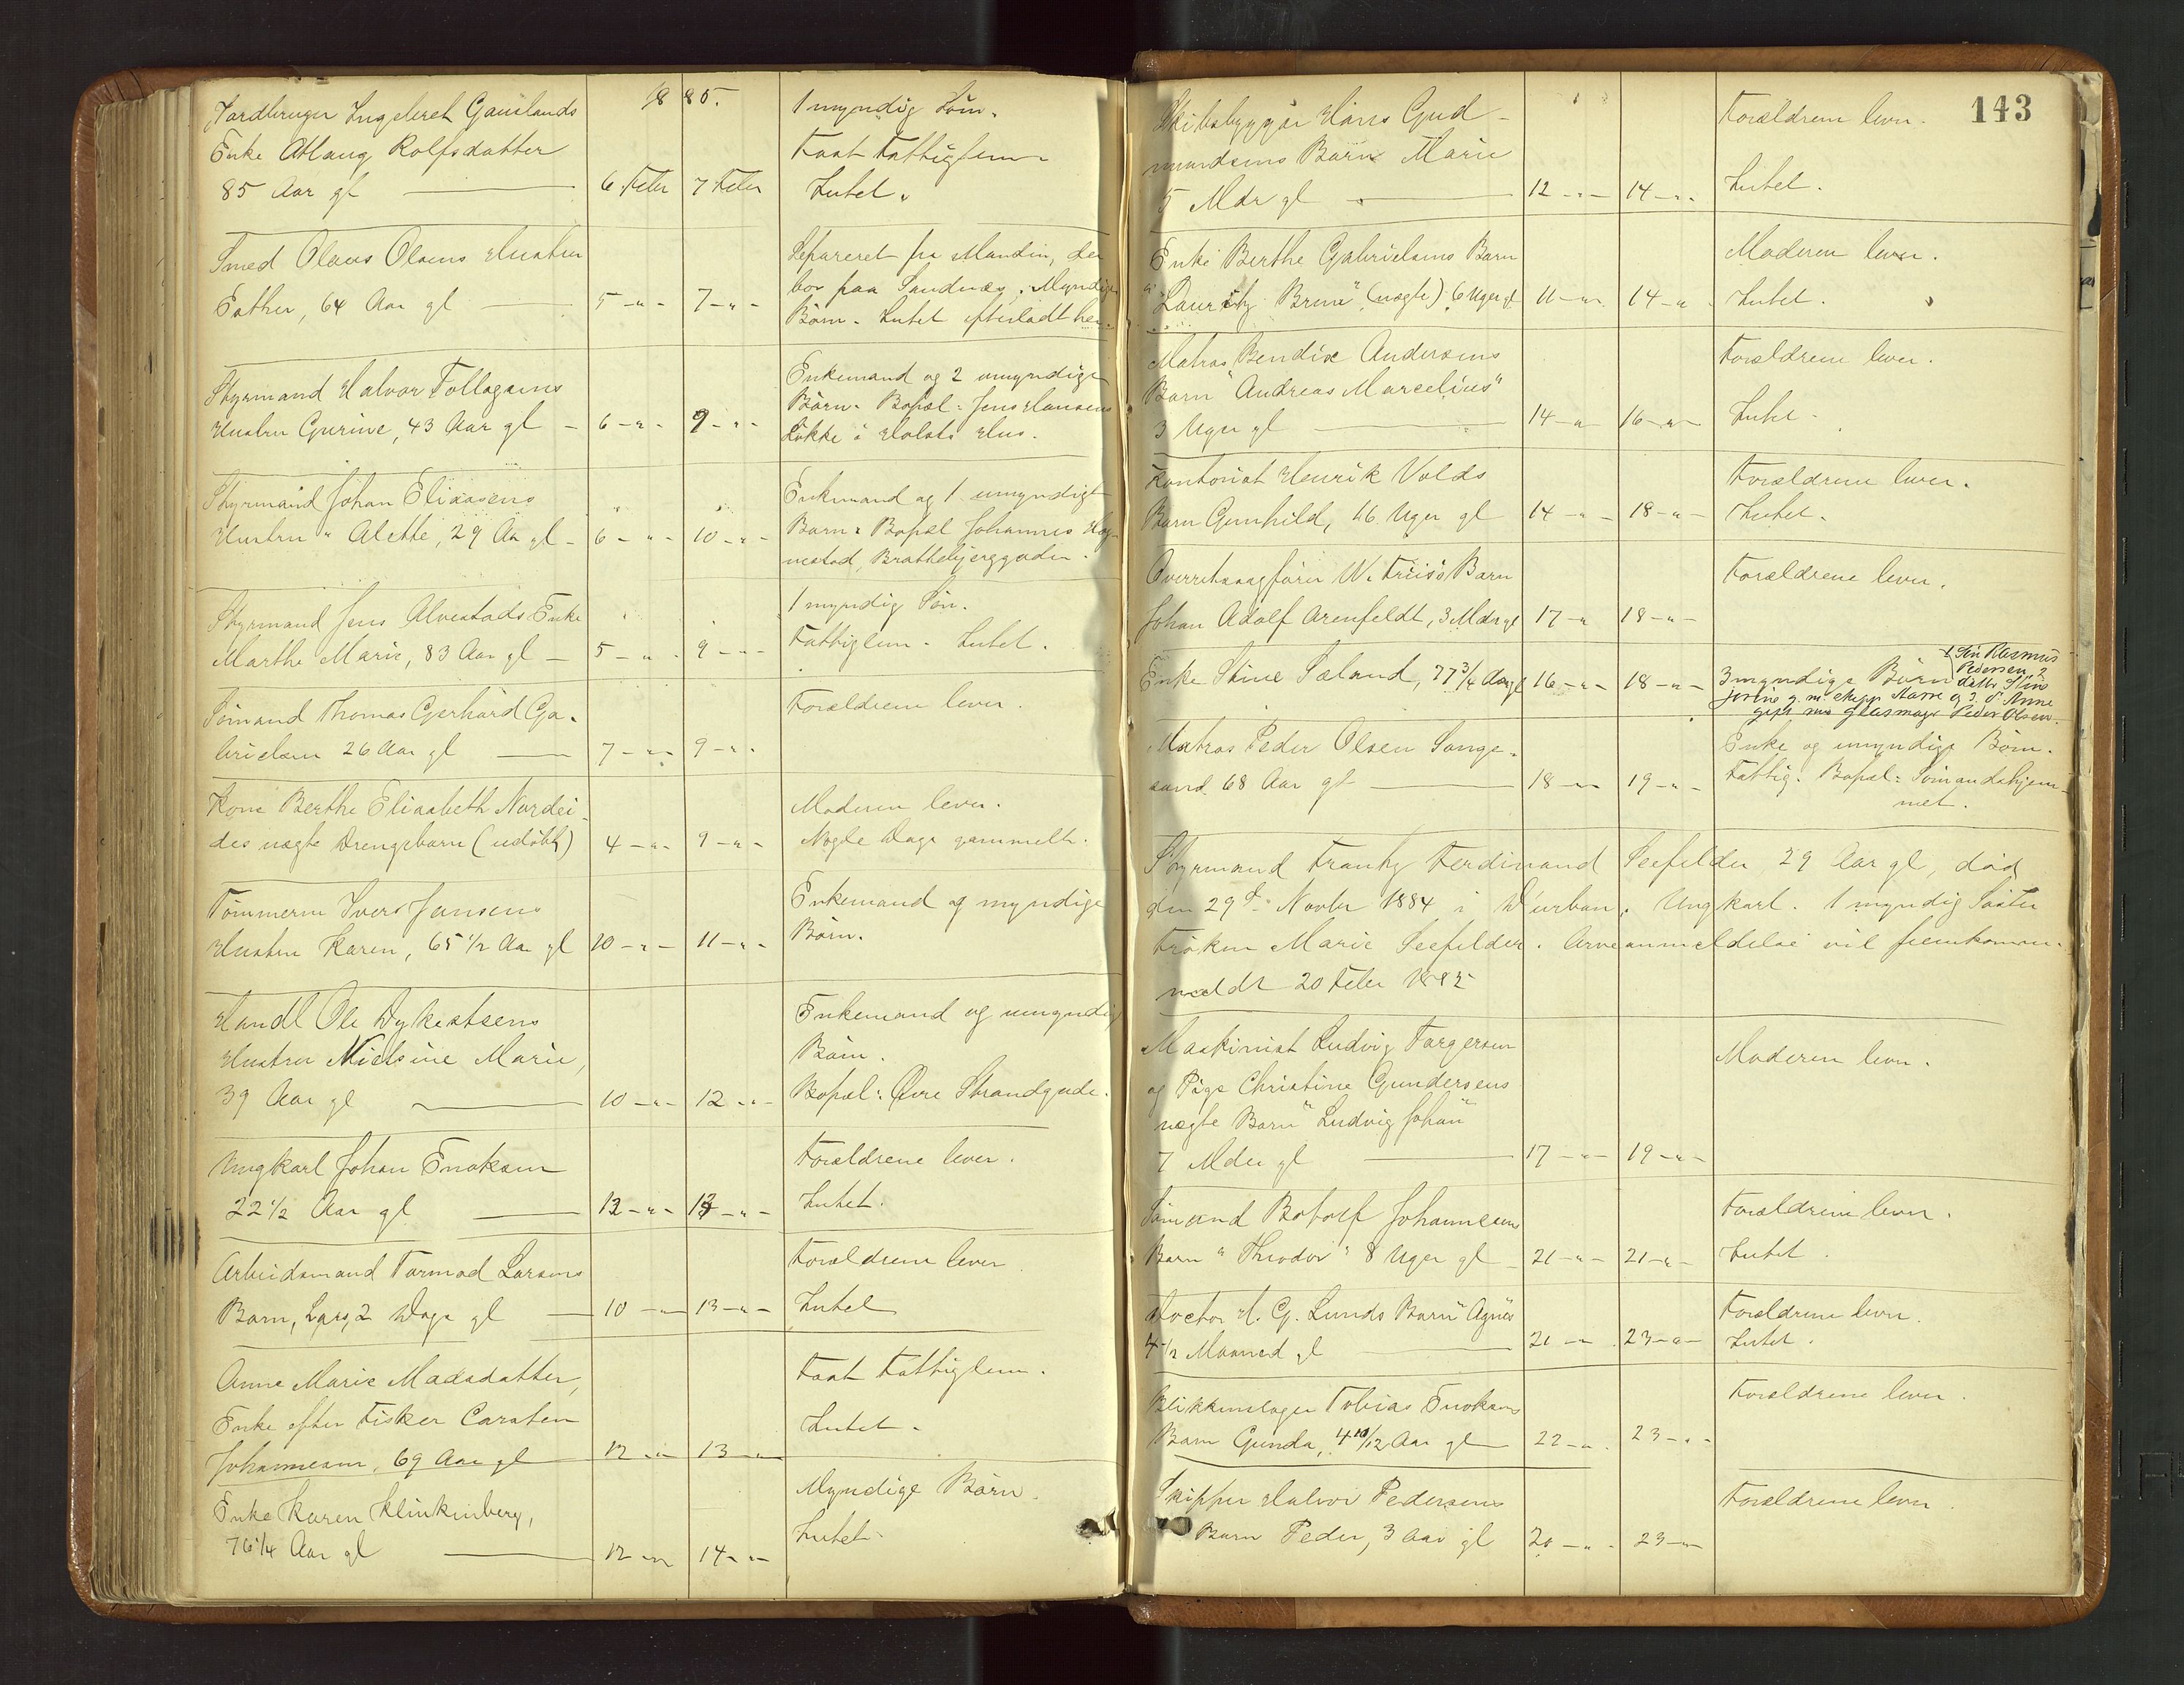 1885.
Jordbruger Ingebret Gauslands
Enke Atlaug Rolfsdatter
85 Aar gl — 6 Febr 7 Febr
1 myndig Søn.
Fast Fattiglem
Intet.
Smed Olaus Olsens Hustru
Esther, 64 Aar gl — 5 -"- 7 -"-
Separeret fra Manden, der
bor paa Sandnæs. Myndige
Børn. Intet efterladt her.
Styrmand Halvor Tollagsens
Hustru Gurine, 43 Aar gl - 6 -"- 9 -"-
Enkemand og 2 umyndige
Børn. Bopæl: Jens Hansens
Løkke i Holsts Hus.
Styrmand Johan Eliassens
Hustru "Alette, 29 Aar gl - 6 -"- 10 -"-
Enkemand og 1 umyndigt
Barn. Bopæl Johannes Høg-
nestad, Brattebjerggaden.
Styrmand Jens Alvestads Enke
Marthe Marie, 83 Aar gl — 5 -"- 9 -"-
1 myndig Søn.
Fattiglem. Intet.
Sømand Thomas Gerhard Ga-
brielsen 26 Aar gl — 7 -"- 9 -"-
Forældrene lever.
Kone Berthe Elisabeth Nordei-
des uægte Drengebarn (udøbt) 4 -"- 9 -"-
Moderen lever.
Nogle Dage gammelt.
Tømmerm Ivers Jensens
Hustru Karen, 65 1/2 Aar gl 10 -"- 11 -"-
Enkemand og myndige
Børn.
Handl Ole Dykesteens
Hustru Nielsine Marie,
39 Aar gl — 10 -"- 12 -"-
Enkemand og umyndige
Børn.
Bopæl: Øvre Strandgade.
Ungkarl Johan Enoksen
22 1/2 Aar gl — 12 -"- 13 -"-
Forældrene lever.
Intet.
Arbeidsmand Tormod Larsens
Barn, Lars, 2 Dage gl — 10 -"- 13 -"-
Forældrene lever
Intet
Anne Marie Madsdatter,
Enke efter Fisker Carsten
Johannesen, 69 Aar gl — 12 -"- 13 -"-
Fast Fattiglem.
Intet.
Enke Karen Klinkenberg,
76 1/4 Aar gl — 12 -"- 14 -"-
Myndige Børn.
Intet.
143
Skibsbygger Hans Gud-
mundsens Barn Marie
5 Mdr gl — 12 -"- 14 -"-
Forældrene lever.
Intet.
Enke Berthe Gabrielsens Barn
"Lauritz Brun" (uægte) 6 Uger gl 11 -"- 14 -"-
Moderen lever.
Intet.
Matros Bendix Andersens
Barn "Andreas Marcelius"
3 Uger gl — 14 -"- 16 -"-
Forældrene lever.
Intet.
Kontorist Henrik Volds
Barn Gunhild, 46 Uger gl 14 -"- 18 -"-
Forældrene lever.
Intet.
Overretssagfører W. Barn
Johan Adolf Arenfeldt, 3 Mdr gl 17 -"- 18 -"-
Forældrene lever.
Enke Stine Sæland, 77 3/4 Aar gl 16 -"- 18 -"-
3 myndige Børn 1 Søn Rasmus
Pedersen, 2
datter
gift med Glasmager Peder Olsen.
Matros Peder Olsen Songe-
sand 68 Aar gl — 18 -"- 19 -"-
Enke og umyndige Børn.
Fattig. Bopæl: Sømandshjem-
met.
Styrmand Frantz Ferdinand Seefelder, 29 Aar gl, død
den 29de Novbr 1884 i Durban. Ungkarl. 1 myndig Søster
Frøken Marie Seefelder. Arveanmeldelse vil fremkomme.
meldt 20 Febr 1885
Maskinist Ludvig Torgersen
og Pige Christine Gundersens
uægte Barn "Ludvig Johan"
7 Mdr gl — 17 -"- 19 -"-
Moderen lever.
Sømand Botolf Johannesens
Barn "Theodor" 8 Uger gl 21 -"- 21 -"-
Forældrene lever.
Intet.
Doctor H. G. Lunds Barn "Agnes"
4 1/2 Maaned gl — 21 -"- 23 -"-
Forældrene lever.
Intet.
Blikkenslager Tobias Enoksens
Barn Gunda, 4 10/12 Aar gl — 22 -"- 23 -"-
Forældrene lever.
Skipper Halvor Pedersens
Barn Peder, 3 Aar gl 20 -"- 23 -"-
Forældrene lever.